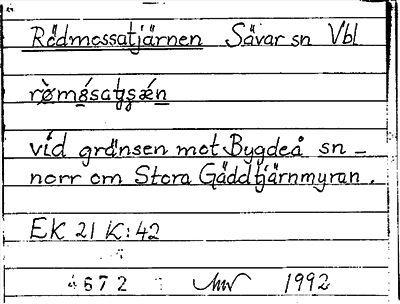 Rödmossatjärnen Sävar sn Vbl
vid gränsen mot Bygdeå sn –
norr om Stora Gäddtjärnmyran.
EK 21 K:42
4672 1992